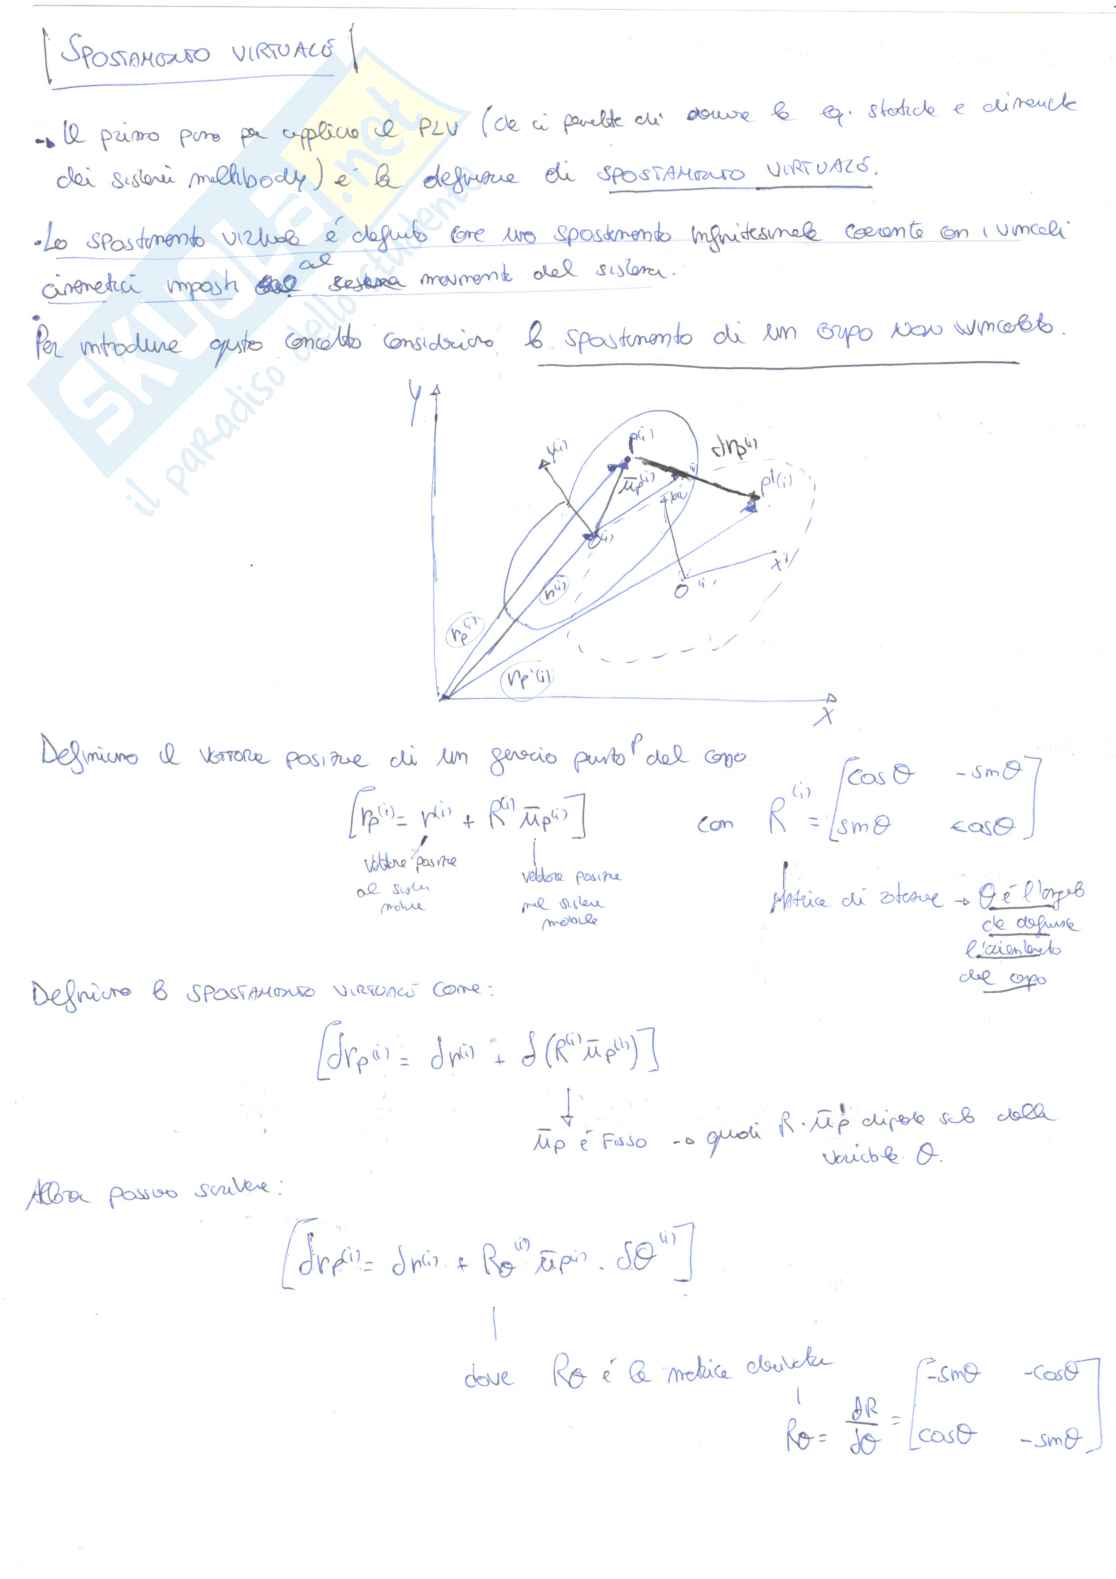 SPOSTAMENTO VIRTUALE
→ Il primo passo per applicare il PLV (che ci permette di ricavare le eq. statiche e dinamiche
dei sistemi multibody) è la definizione di SPOSTAMENTO VIRTUALE.
• Lo spostamento virtuale è definito come uno spostamento infinitesimale coerente con i vincoli
cinematici imposti al movimento del sistema.
• Per introdurre questo concetto consideriamo lo spostamento di un corpo NON VINCOLATO.
Y
Y(i)
P(i)
δrp(i)
P'(i)
ūp(i)
O(i)
r(i)
O'(i)
X'
rp(i)
rp'(i)
X
Definiamo il VETTORE POSIZIONE di un generico punto P del corpo
[rp(i) = r(i) + R(i) ūp(i)] con R(i) = [cosθ -senθ
senθ cosθ]
vettore posizione
al sistema
vettore posizione
nel sistema
mobile
Matrice di rotazione → θ è l'angolo
che definisce
l'orientamento
del corpo
Definiamo lo SPOSTAMENTO VIRTUALE come:
[δrp(i) = δr(i) + δ(R(i) ūp(i))]
↓
ūp è FISSO → quindi R · ūp dipende solo dalla
variabile θ.
Allora possiamo scrivere:
[δrp(i) = δr(i) + Rθ(i) ūp(i) · δθ(i)]
dove Rθ è la matrice derivata
Rθ = dR/dθ = [-senθ -cosθ
cosθ -senθ]
SKUOLA.net
il paradiso dello studente